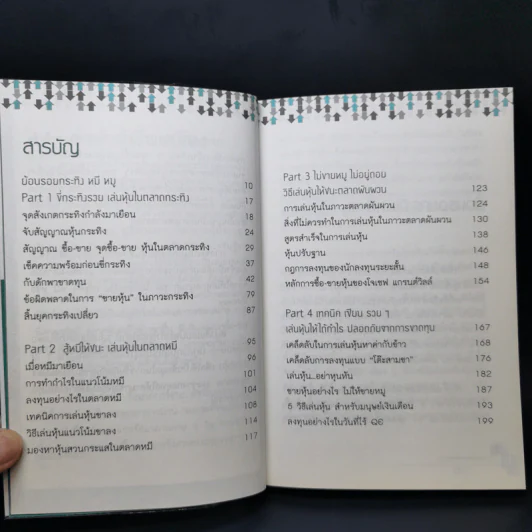 สารบัญ
ย้อนรอยกระทิง หมี หมู 10
Part 1 ขี่กระทิงรวย เล่นหุ้นในตลาดกระทิง 17
จุดสังเกตกระทิงกำลังมาเยือน 18
จับสัญญาณหุ้นกระทิง 24
สัญญาณ ซื้อ-ขาย จุดซื้อ-ขาย หุ้นในตลาดกระทิง 29
เช็คความพร้อมก่อนขี่กระทิง 37
กับดักพาขาดทุน 42
ข้อผิดพลาดในการ “ขายหุ้น” ในภาวะกระทิง 79
สิ้นยุคกระทิงเปลี่ยว 87
Part 2 สู้หมีให้ชนะ เล่นหุ้นในตลาดหมี 95
เมื่อหมีมาเยือน 96
การทำกำไรในแนวโน้มหมี 101
ลงทุนอย่างไรในตลาดหมี 104
เทคนิคการเล่นหุ้นขาลง 108
วิธีเล่นหุ้นแนวโน้มขาลง 114
มองหาหุ้นสวนกระแสในตลาดหมี 117
Part 3 ไม่ขายหมู ไม่อยู่ดอย
วิธีเล่นหุ้นให้ชนะตลาดผันผวน 123
การเล่นหุ้นในภาวะตลาดผันผวน 124
สิ่งที่ไม่ควรทำในการเล่นหุ้นในภาวะตลาดผันผวน 130
สูตรสำเร็จในการเล่นหุ้น 138
หุ้นปรับฐาน 146
กฎการลงทุนของนักลงทุนระยะสั้น 148
หลักการซื้อ-ขายหุ้นของโจเซฟ แกรนด์วิลล์ 154
Part 4 เทคนิค เซียน รวย ๆ
เล่นหุ้นให้ได้กำไร ปลอดภัยจากการขาดทุน 167
เคล็ดลับในการเล่นหุ้นหาค่ากับข้าว 168
เคล็ดลับการลงทุนแบบ “โต๊ะสามขา” 176
เล่นหุ้น...อย่าหุนหัน 182
ขายหุ้นอย่างไร ไม่ให้ขายหมู 187
6 วิธีเล่นหุ้น สำหรับมนุษย์เงินเดือน 193
ลงทุนอย่างไรในวันที่ไร้ QE 199